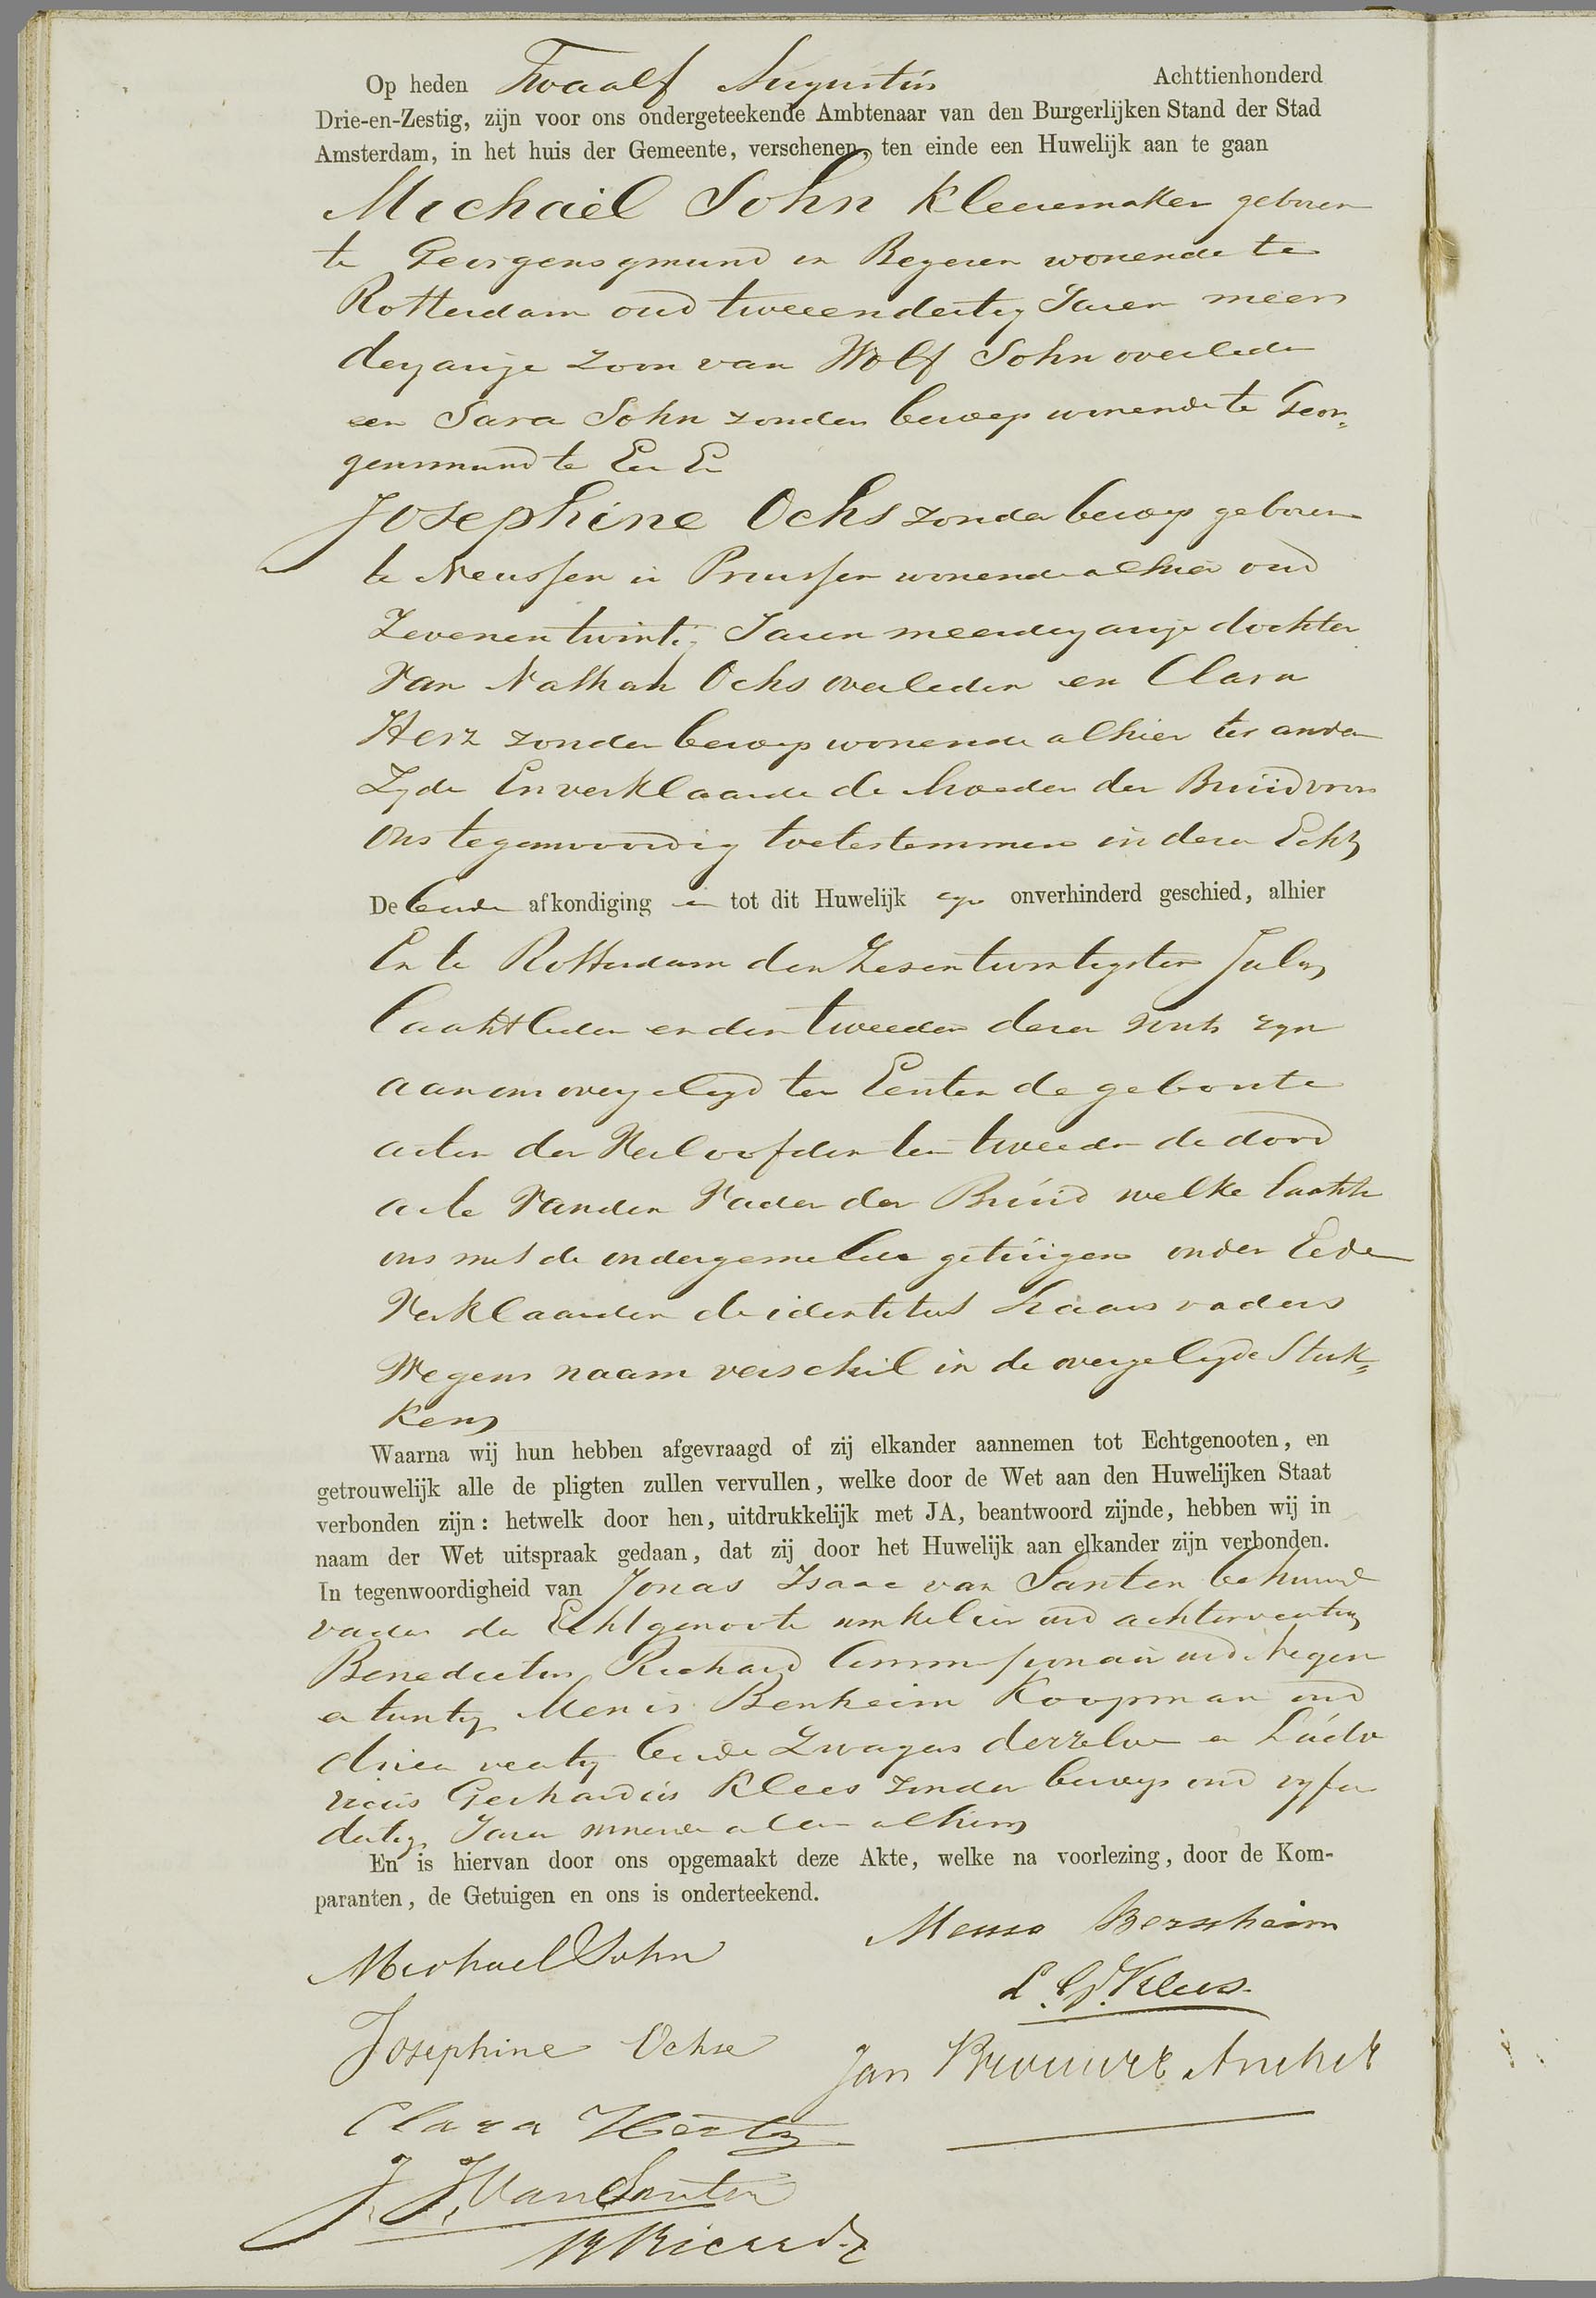 Op heden Twaalf Augustus Achttienhonderd
Drie-en-Zestig, zijn voor ons ondergeteekende Ambtenaar van den Burgerlijken Stand der Stad
Amsterdam, in het huis der Gemeente, verschenen, ten einde een Huwelijk aan te gaan
Michaël Sohn Kleermaker geboren
te Georgensgmund in Beyeren wonende te
Rotterdam oud tweeendertig Jaren meer
derjarige zoon van Wolf Sohn overleden
en Sara Sohn zonder beroep wonende te Geor„
gensmund te Eener En
Josephine Ochs zonder beroep geboren
te Neussen in Pruissen wonende alhier oud
Zevenentwintig Jaren meerderjarige dochter
Van Nathan Ochs overleden en Clara
Herz zonder beroep wonende alhier ter andere
Zyde En verklaarde de moeder der Bruid voor
Ons tegenwoordig toetestemmen in deze Echt
De beide afkondigingen tot dit Huwelijk zyn onverhinderd geschied, alhier
En te Rotterdam den Zesentwintigsten July
laatstleden en den tweeden dezer zynde zyn
aan ons overgelegd ten Eersten de geboorte
acten der Verloofden ten tweede de dood
acte Van den Vader der Bruid welke laatste
ons met de ondergemelde getuigen onder Eede
Verklaarden de identiteit haars vaders
Wegens naam verschil in de overgelegde Stuk„
ken
Waarna wij hun hebben afgevraagd of zij elkander aannemen tot Echtgenooten, en
getrouwelijk alle de pligten zullen vervullen, welke door de Wet aan den Huwelijken Staat
verbonden zijn: hetwelk door hen, uitdrukkelijk met JA, beantwoord zijnde, hebben wij in
naam der Wet uitspraak gedaan, dat zij door het Huwelijk aan elkander zijn verbonden.
In tegenwoordigheid van Jonas Isaac van Santen behuwd
vader der Echtgenoote winkelier oud achtenveertig
Benedictus Richard Commissionair oud Negen
en twintig Menis Benheim Koopman oud
drieen veertig beide Zwagers derzelve en Ludo
vicus Gerhardus Klees zonder beroep oud vyfen
dertig Jaren wonende allen alhier
En is hiervan door ons opgemaakt deze Akte, welke na voorlezing, door de Kom-
paranten, de Getuigen en ons is onderteekend.
Michael Sohn
Menso Bernheim
L. G. Klees
Josephine Ochse
Jan Brouwer Ancher
Clara Hertz
J. J. Van Santen
B Ricard